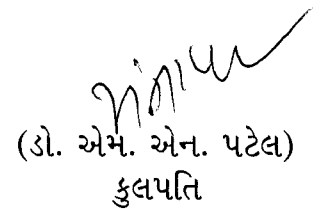 (ડો. એમ. એન. પટેલ)
કુલપતિ